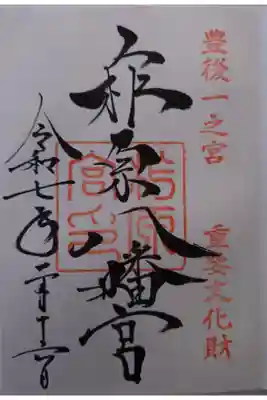 豊後一之宮　重要文化財
柞原八幡宮
柞原
宮印
令和七年二月十六日